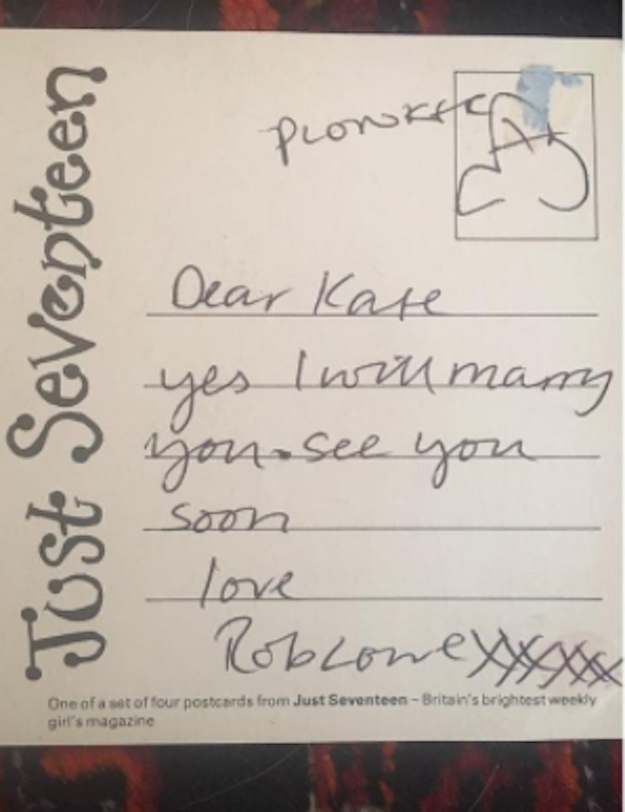 Just Seventeen
Dear Kate
yes I will marry
you. see you
soon
love
Rob Lowe XXXXX
One of a set of four postcards from Just Seventeen – Britain's brightest weekly
girl's magazine